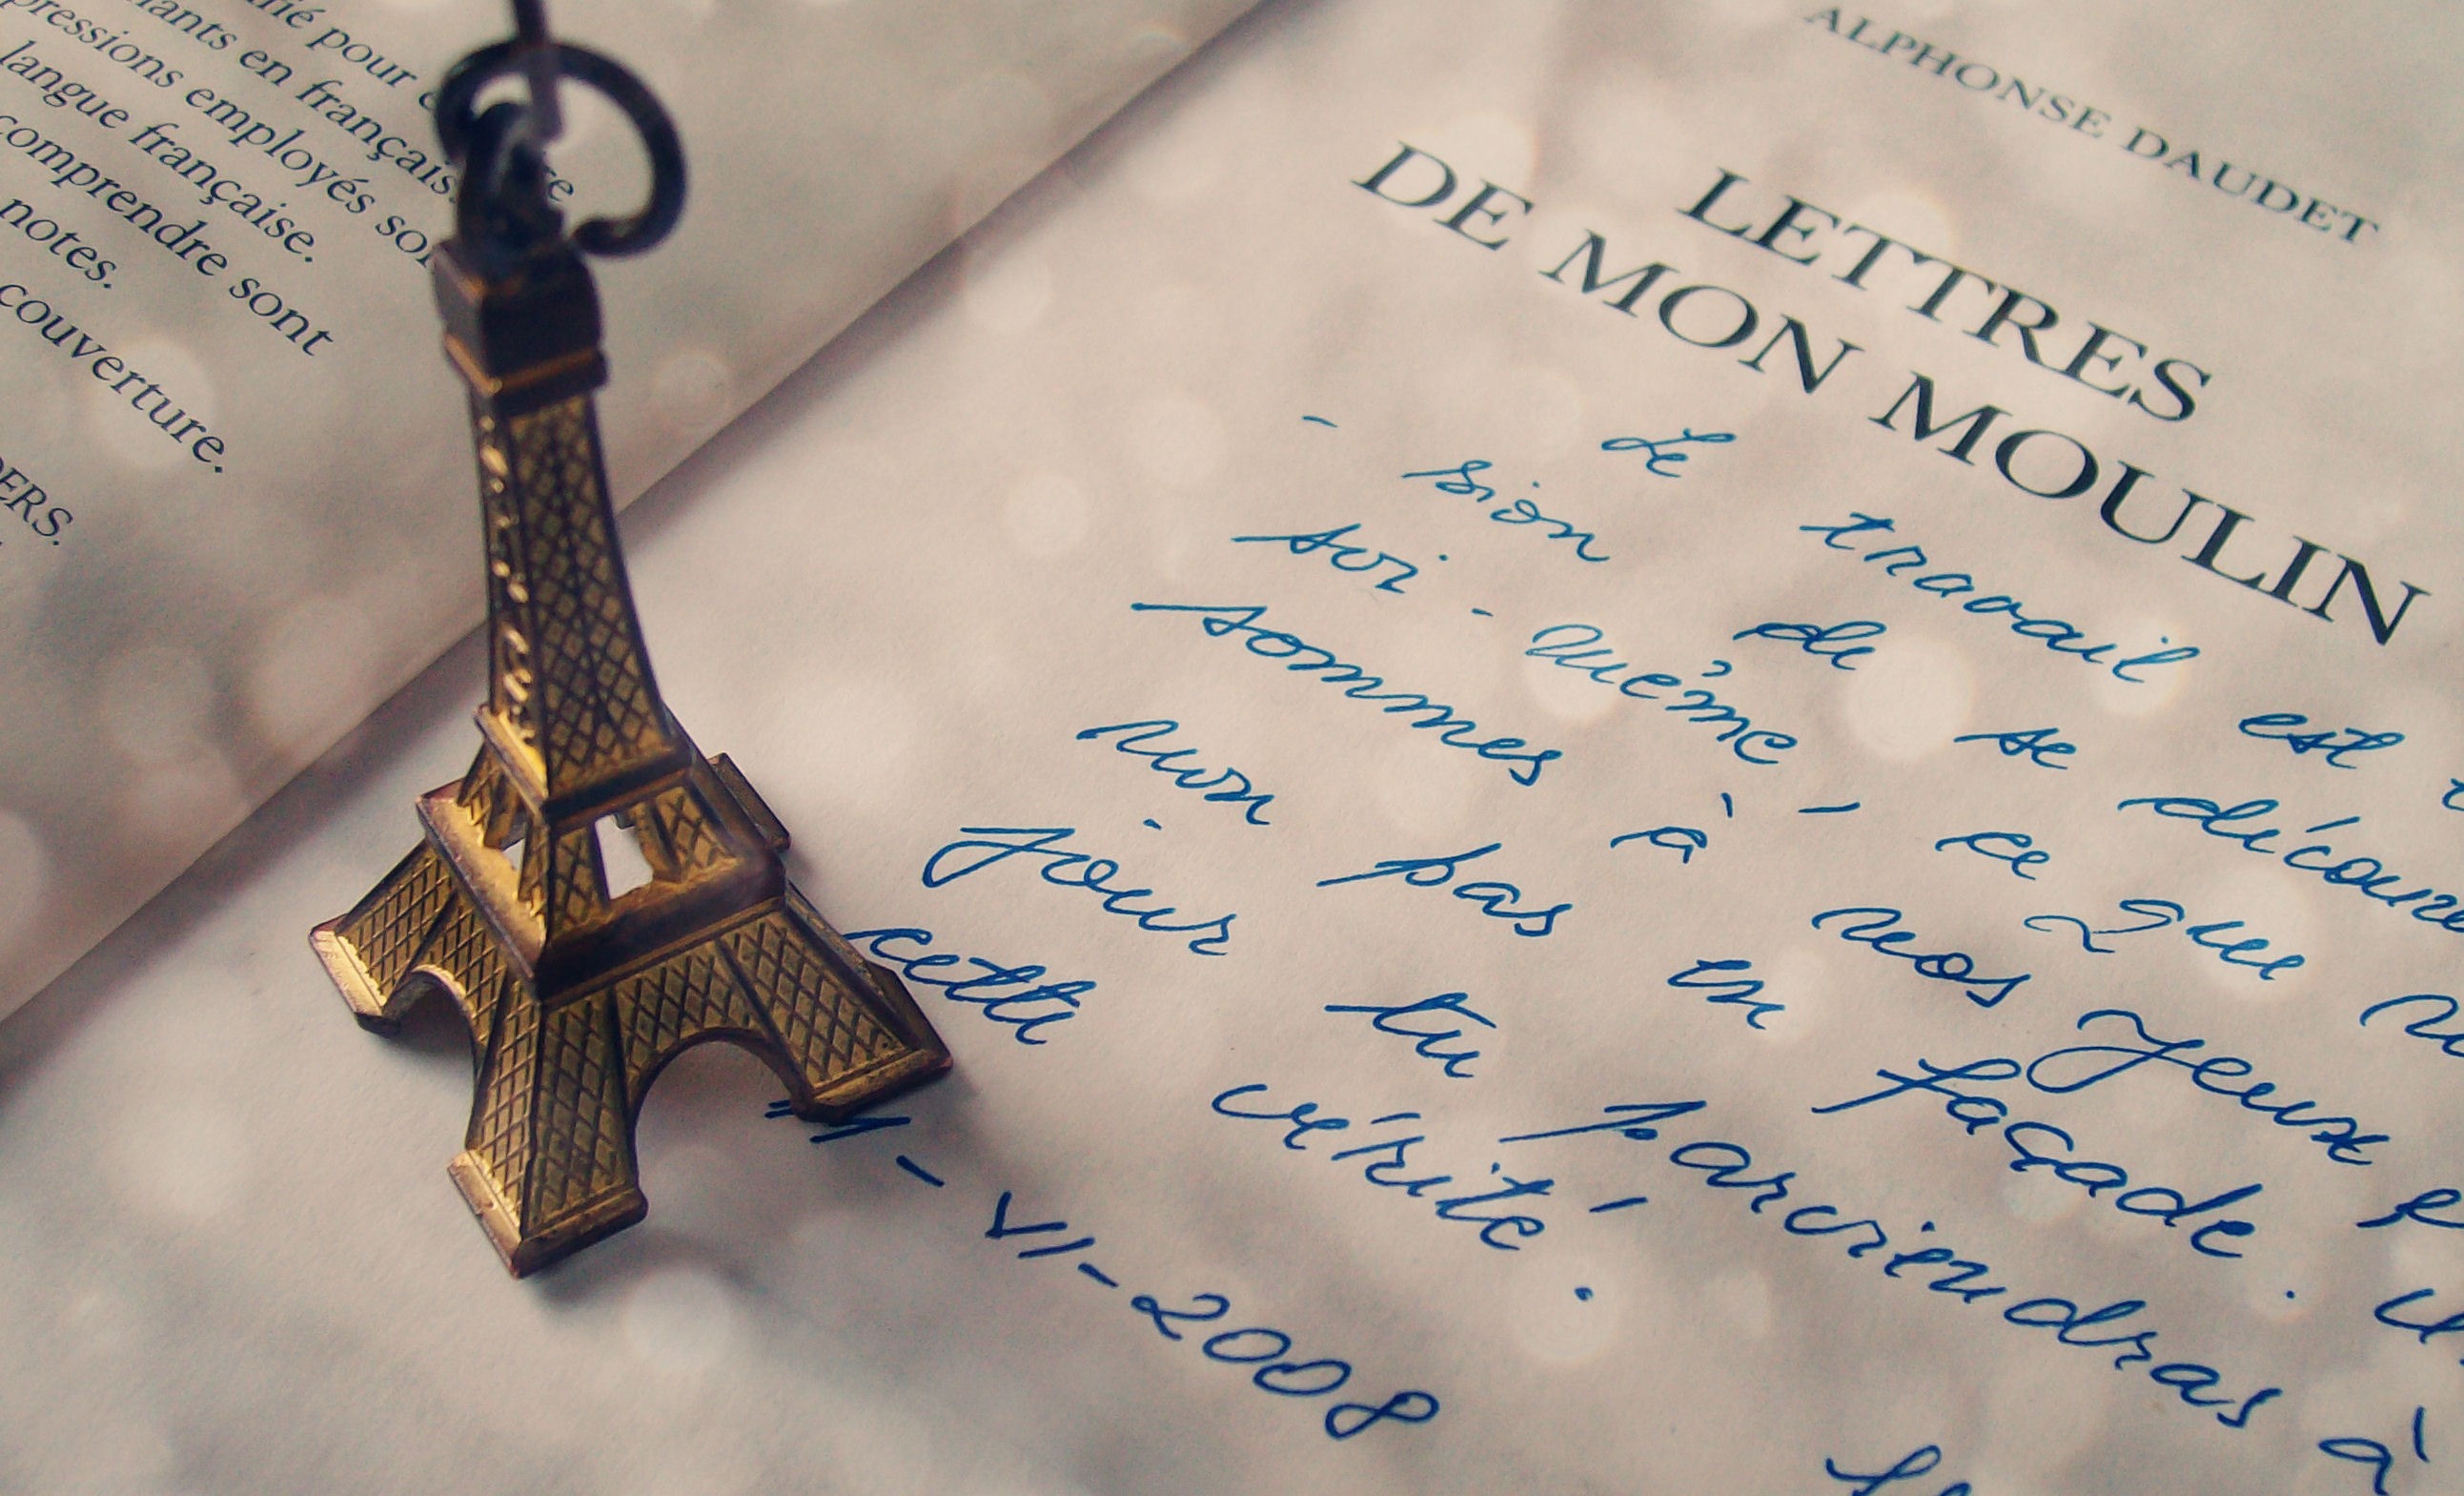 ié pour
nants en français.
pressions employés
langue française.
comprendre sont
notes.
couverture.
ERS.
ALPHONSE DAUDET
LETTRES
DE MON MOULIN
Le travail est
- sion de se décou
soi-même, ce que
sommes à nos yeux e
non pas en façade. U
jour tu parviendras à
cette vérité.
- VI - 2008